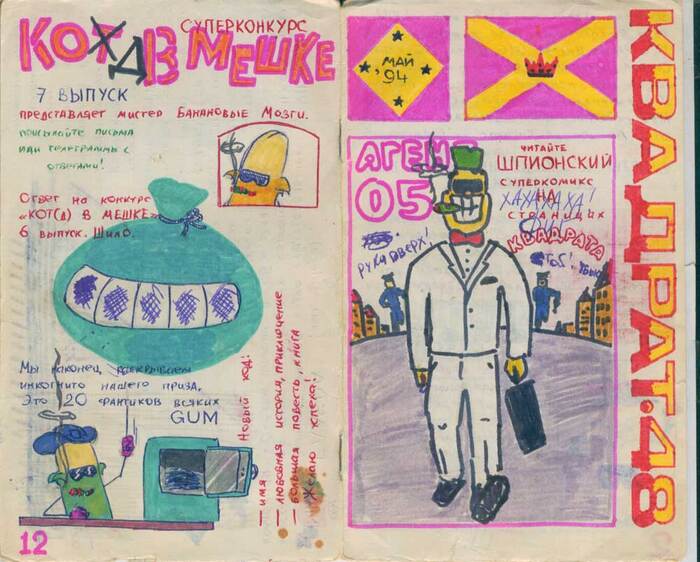 СУПЕРКОНКУРС
КОТ Д В МЕШКЕ
7 ВЫПУСК
представляет мистер Банановые Мозги.
присылайте письма
или телеграммы с
ответами!
Ответ на конкурс
«КОТ(д) В МЕШКЕ»
6 выпуск. Шило.
Мы наконец, раскрываем
инкогнито нашего приза.
Это 20 фантиков всяких
GUM
Новый код:
— имя
— любовная история, приключение
— большая повесть, книга
Желаю успеха!
12
МАЙ
'94
КВАДРАТ·48
АГЕНТ
05
ЧИТАЙТЕ
ШПИОНСКИЙ
СУПЕРКОМИКС
НА
СТРАНИЦАХ
КВАДРАТА
ХАХАХАХА!
ФИГ
РУКИ ВВЕРХ!